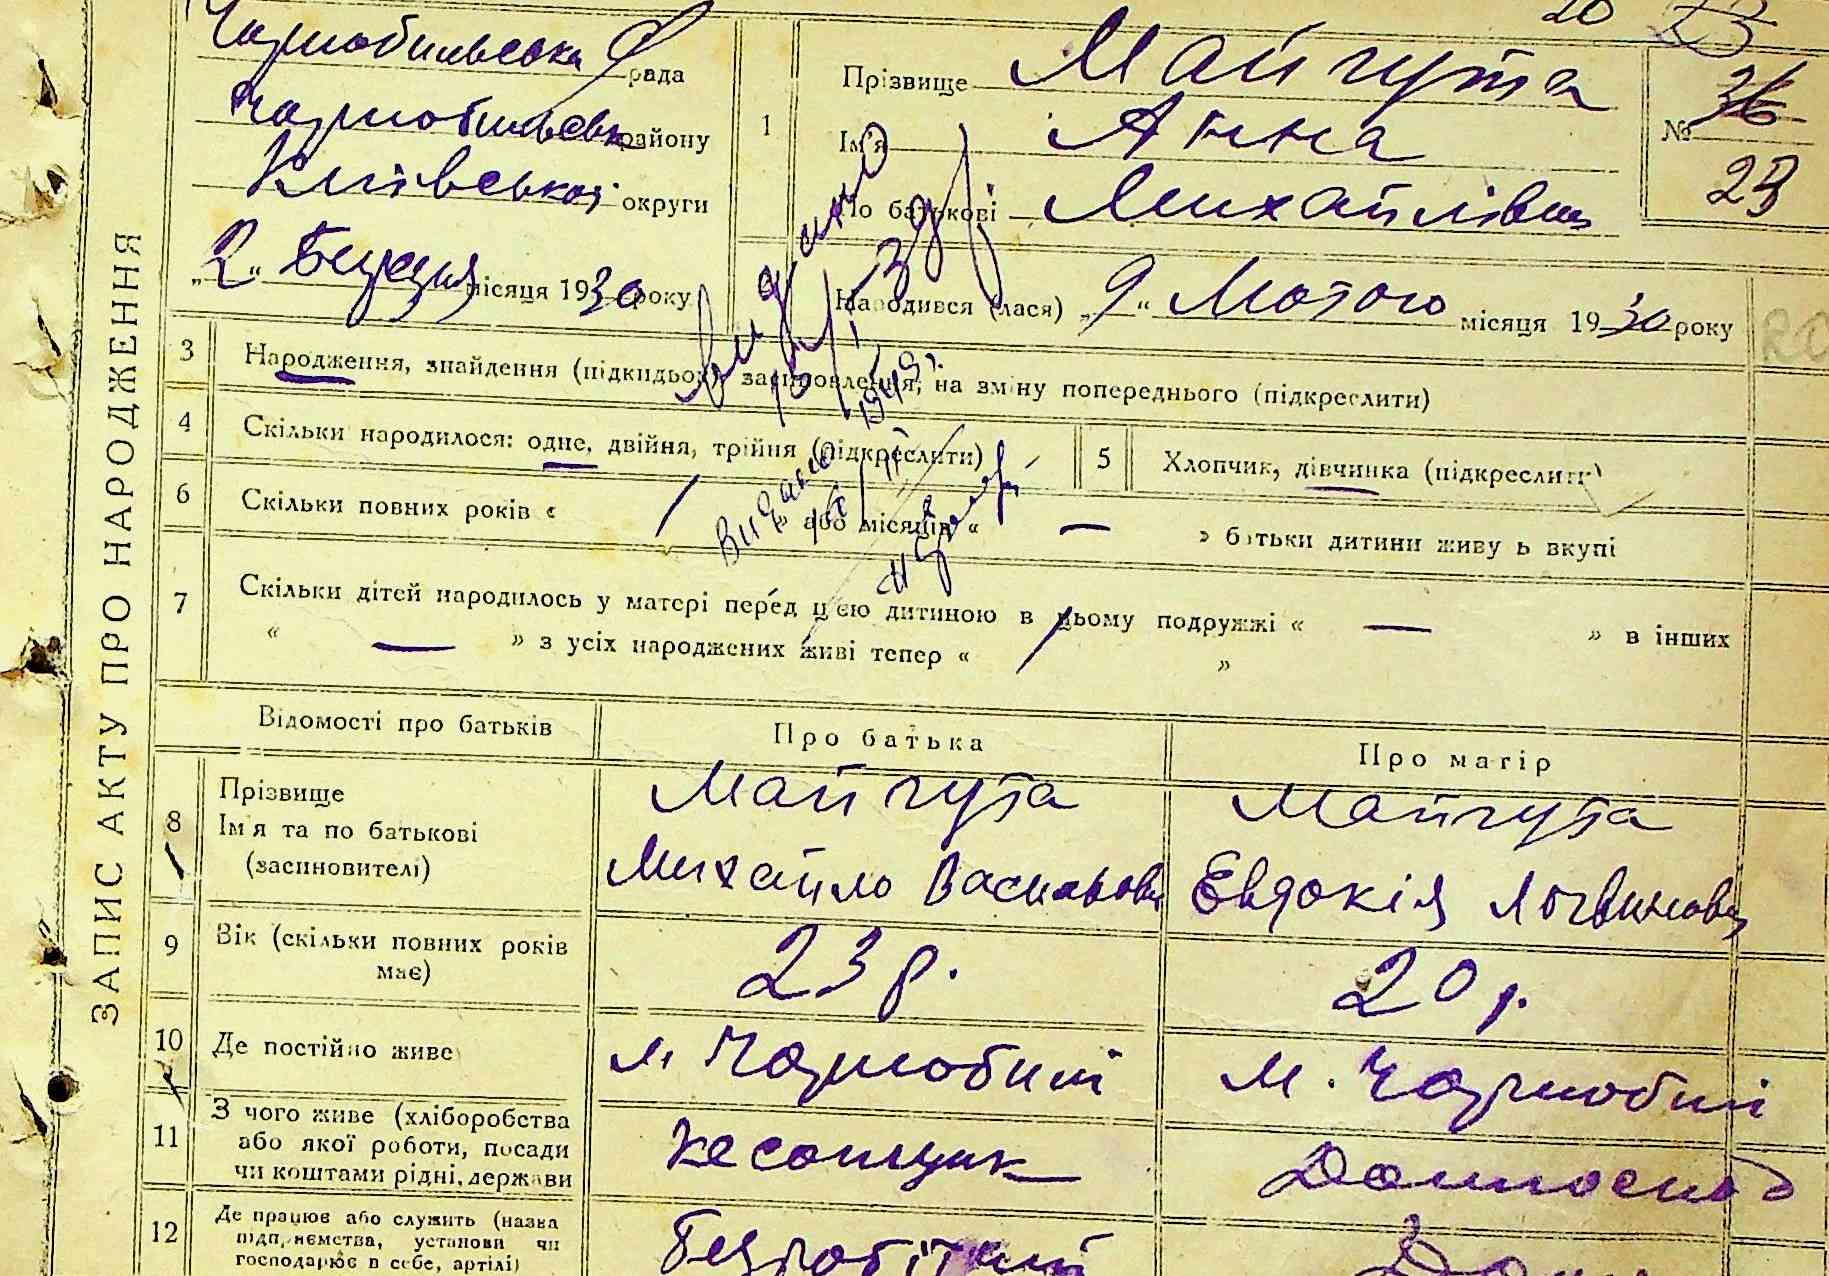 Чорнобильська рада
Чорнобильськ району
Київської округи
„2“ Березня місяця 1930 року
20 23
1
Прізвище Майгута
Ім'я Анна
По батькові Михайлівна
№ 36
23
Народився (лася) „9“ Лютого місяця 1930 року
ЗАПИС АКТУ ПРО НАРОДЖЕННЯ
3 Народження, знайдення (підкидьок), засиновлення, на зміну попереднього (підкреслити)
4 Скільки народилося: одне, двійня, трійня (підкреслити)
5 Хлопчик, дівчинка (підкреслити)
6 Скільки повних років « » або місяців « — » батьки дитини живуть вкупі
7 Скільки дітей народилось у матері перед цією дитиною в цьому подружжі « — » в інших
« — » з усіх народжених живі тепер « »
Видано
Видано
Відомості про батьків
Про батька
Про матір
8 Прізвище
Ім'я та по батькові
(засиновителі)
Майгута
Михайло Васильович
Майгута
Евдокія Логвинова
9 Вік (скільки повних років
має)
23 р.
20 р.
10 Де постійно живе
м Чорнобилі
м. Чорнобилі
11 З чого живе (хліборобства
або якої роботи, посади
чи коштами рідні, держави
Домгоспод
12 Де працює або служить (назва
підприємства, установи чи
господарює в себе, артілі)
Безробітний